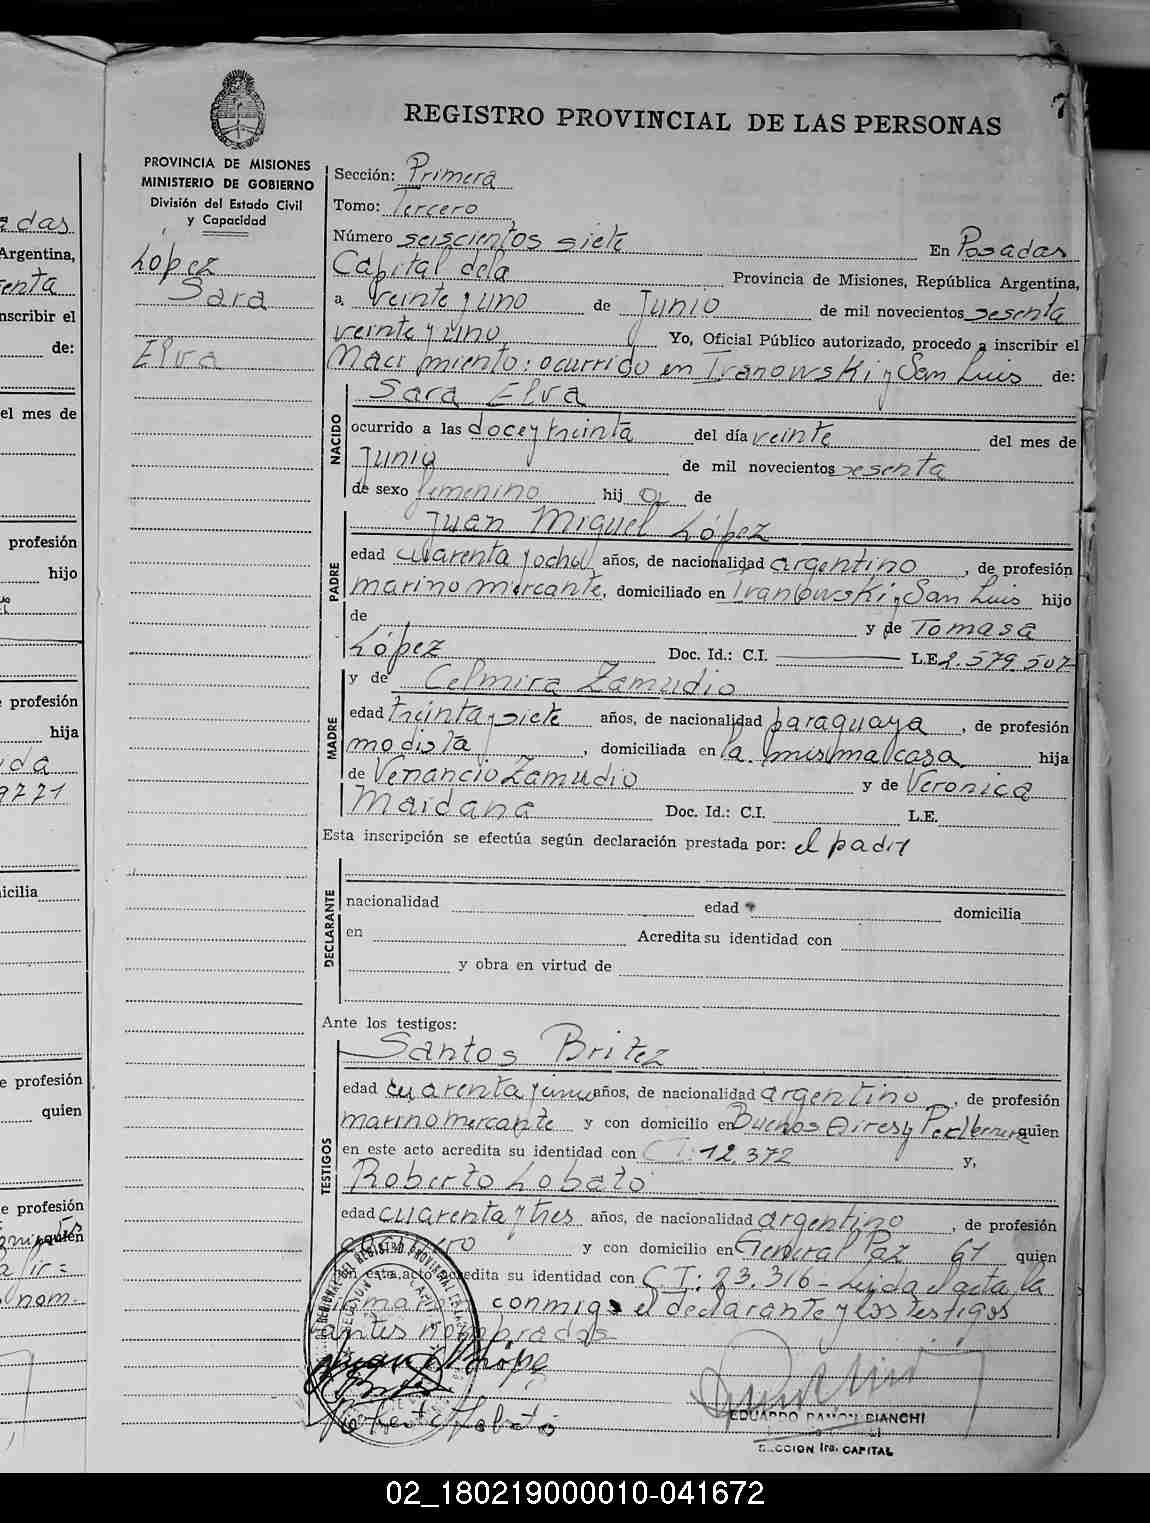 7
REGISTRO PROVINCIAL DE LAS PERSONAS
PROVINCIA DE MISIONES
MINISTERIO DE GOBIERNO
División del Estado Civil
y Capacidad
López
Sara
Elva
Sección: Primera
Tomo: Tercero
Número seiscientos siete En Posadas
Capital dela Provincia de Misiones, República Argentina,
a veinte y uno de Junio de mil novecientos sesenta
veinte y uno Yo, Oficial Público autorizado, procedo a inscribir el
Nacimiento: ocurrido en Ivanowski y San Luis de:
NACIDO
Sara Elva
ocurrido a las doce y treinta del día veinte del mes de
Junio de mil novecientos sesenta
de sexo femenino hij a de
PADRE
Juan Miguel López
edad cuarenta y ocho años, de nacionalidad argentino, de profesión
marino mercante, domiciliado en Ivanowski y San Luis hijo
de y de Tomasa
López Doc. Id.: C.I. L.E 2.579.507
MADRE
y de Celmira Zamudio
edad treinta y siete años, de nacionalidad paraguaya, de profesión
modista, domiciliada en la misma casa hija
de Venancio Zamudio y de Veronica
Maidana Doc. Id.: C.I. L.E.
Esta inscripción se efectúa según declaración prestada por: el padre
DECLARANTE
nacionalidad edad domicilia
en Acredita su identidad con
y obra en virtud de
Ante los testigos:
TESTIGOS
Santos Britez
edad cuarenta y uno años, de nacionalidad argentino, de profesión
marino mercante y con domicilio en Buenos Aires y quien
en este acto acredita su identidad con C I: 12.372 y,
Roberto Lobato
edad cuarenta y tres años, de nacionalidad argentino, de profesión
y con domicilio en General Paz 67 quien
en este acto acredita su identidad con C I: 23.316 - Leida el acta la
conmigo el declarante y los testigos
antes nombrados
EDUARDO RAMON BIANCHI
SECCION 1ra. CAPITAL
adas
Argentina,
enta
nscribir el
de:
el mes de
profesión
hijo
profesión
hija
ida
9771
icilia
e profesión
quien
e profesión
quien
nom.
02_180219000010-041672